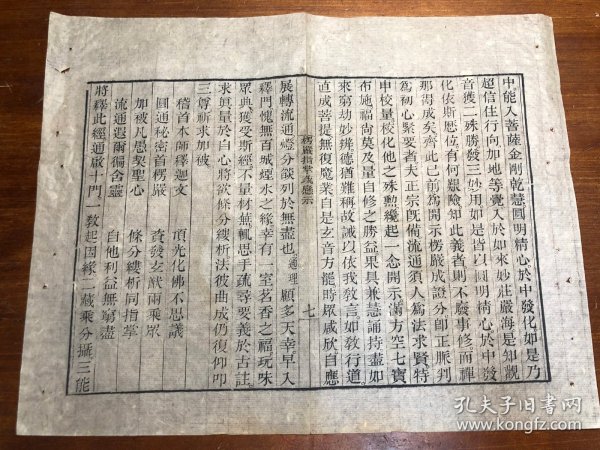 中能入菩薩金剛乾慧圓明精心於中發化如是乃
超信住行向加地等覺入於如來妙莊嚴海是知觀
音獲二殊勝發三妙用如是皆以圓明精心於中發
化依斯歷位有何艱險知此義者則不廢事修而禪
那得成矣齊此已前為開示楞嚴成證分即正脈判
為初心緊要者夫正宗旣備流通須人為法求賢特
申校量校化他之殊勲纔起一念開示滿方空七寶
布施福尚莫及量自修之勝益果具兼慧誦持盡如
來窮劫妙辨德猶難稱故誡以依我教言如敎行道
直成菩提無復魔業自是玄音方罷時眾咸欣自應
楞嚴指掌疏懸示
七
展轉流通燈分燄列於無盡也通理願多天幸早入
釋門愧無百城煙水之緣幸有一室茗香之福玩味
眾典獲受斯經不量材蕪輒思手疏尋要義於古註
求眞量於自心將欲條分縷析法彼曲成仍復仰叩
三尊祈求加被
稽首本師釋迦文 頂光化佛不思議
圓通秘密首楞嚴 資發玄猷兩乘眾
加被凡愚契聖心 條分縷析同指掌
流通遐邇獨含靈 自他利益無窮盡
將釋此經通啟十門一敎起因緣二藏乘分攝三能
孔夫子旧书网
www.kongfz.com